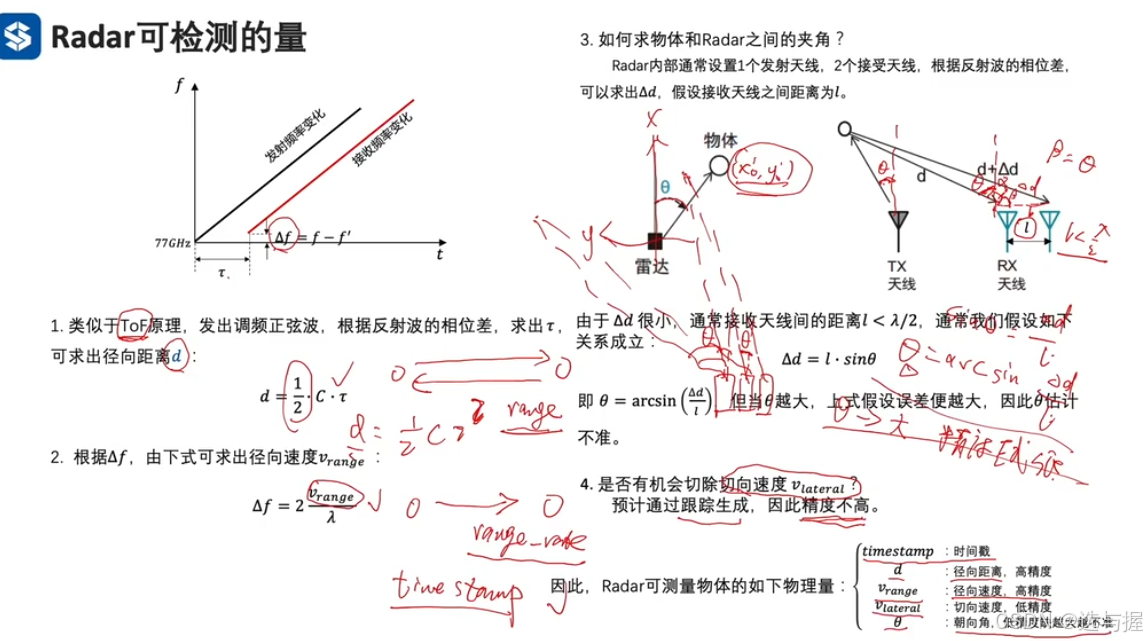 Radar可检测的量
f
发射频率变化
接收频率变化
77GHz
Δf = f − f'
t
τ
1. 类似于ToF原理，发出调频正弦波，根据反射波的相位差，求出τ，
可求出径向距离d：
d = 1/2 · C · τ
d = 1/2 C τ
range
2. 根据Δf，由下式可求出径向速度vrange：
Δf = 2 vrange/λ
range_rate
timestamp
3. 如何求物体和Radar之间的夹角？
Radar内部通常设置1个发射天线，2个接受天线，根据反射波的相位差，
可以求出Δd，假设接收天线之间距离为l。
x
物体
(x0', y0')
θ
y
雷达
d+Δd
d
β=θ
θ
l
TX
天线
RX
天线
由于 Δd 很小，通常接收天线间的距离l < λ/2，通常我们假设如下
关系成立：
Δd = l · sinθ
θ = arcsin Δd/l
即 θ = arcsin(Δd/l)，但当θ越大，上式假设误差便越大，因此θ估计
不准。
θ → 大
4. 是否有机会切除切向速度 vlateral？
预计通过跟踪生成，因此精度不高。
因此，Radar可测量物体的如下物理量：
timestamp：时间戳
d：径向距离，高精度
vrange：径向速度，高精度
vlateral：切向速度，低精度
θ：朝向角，低精度
CSDN @选与握